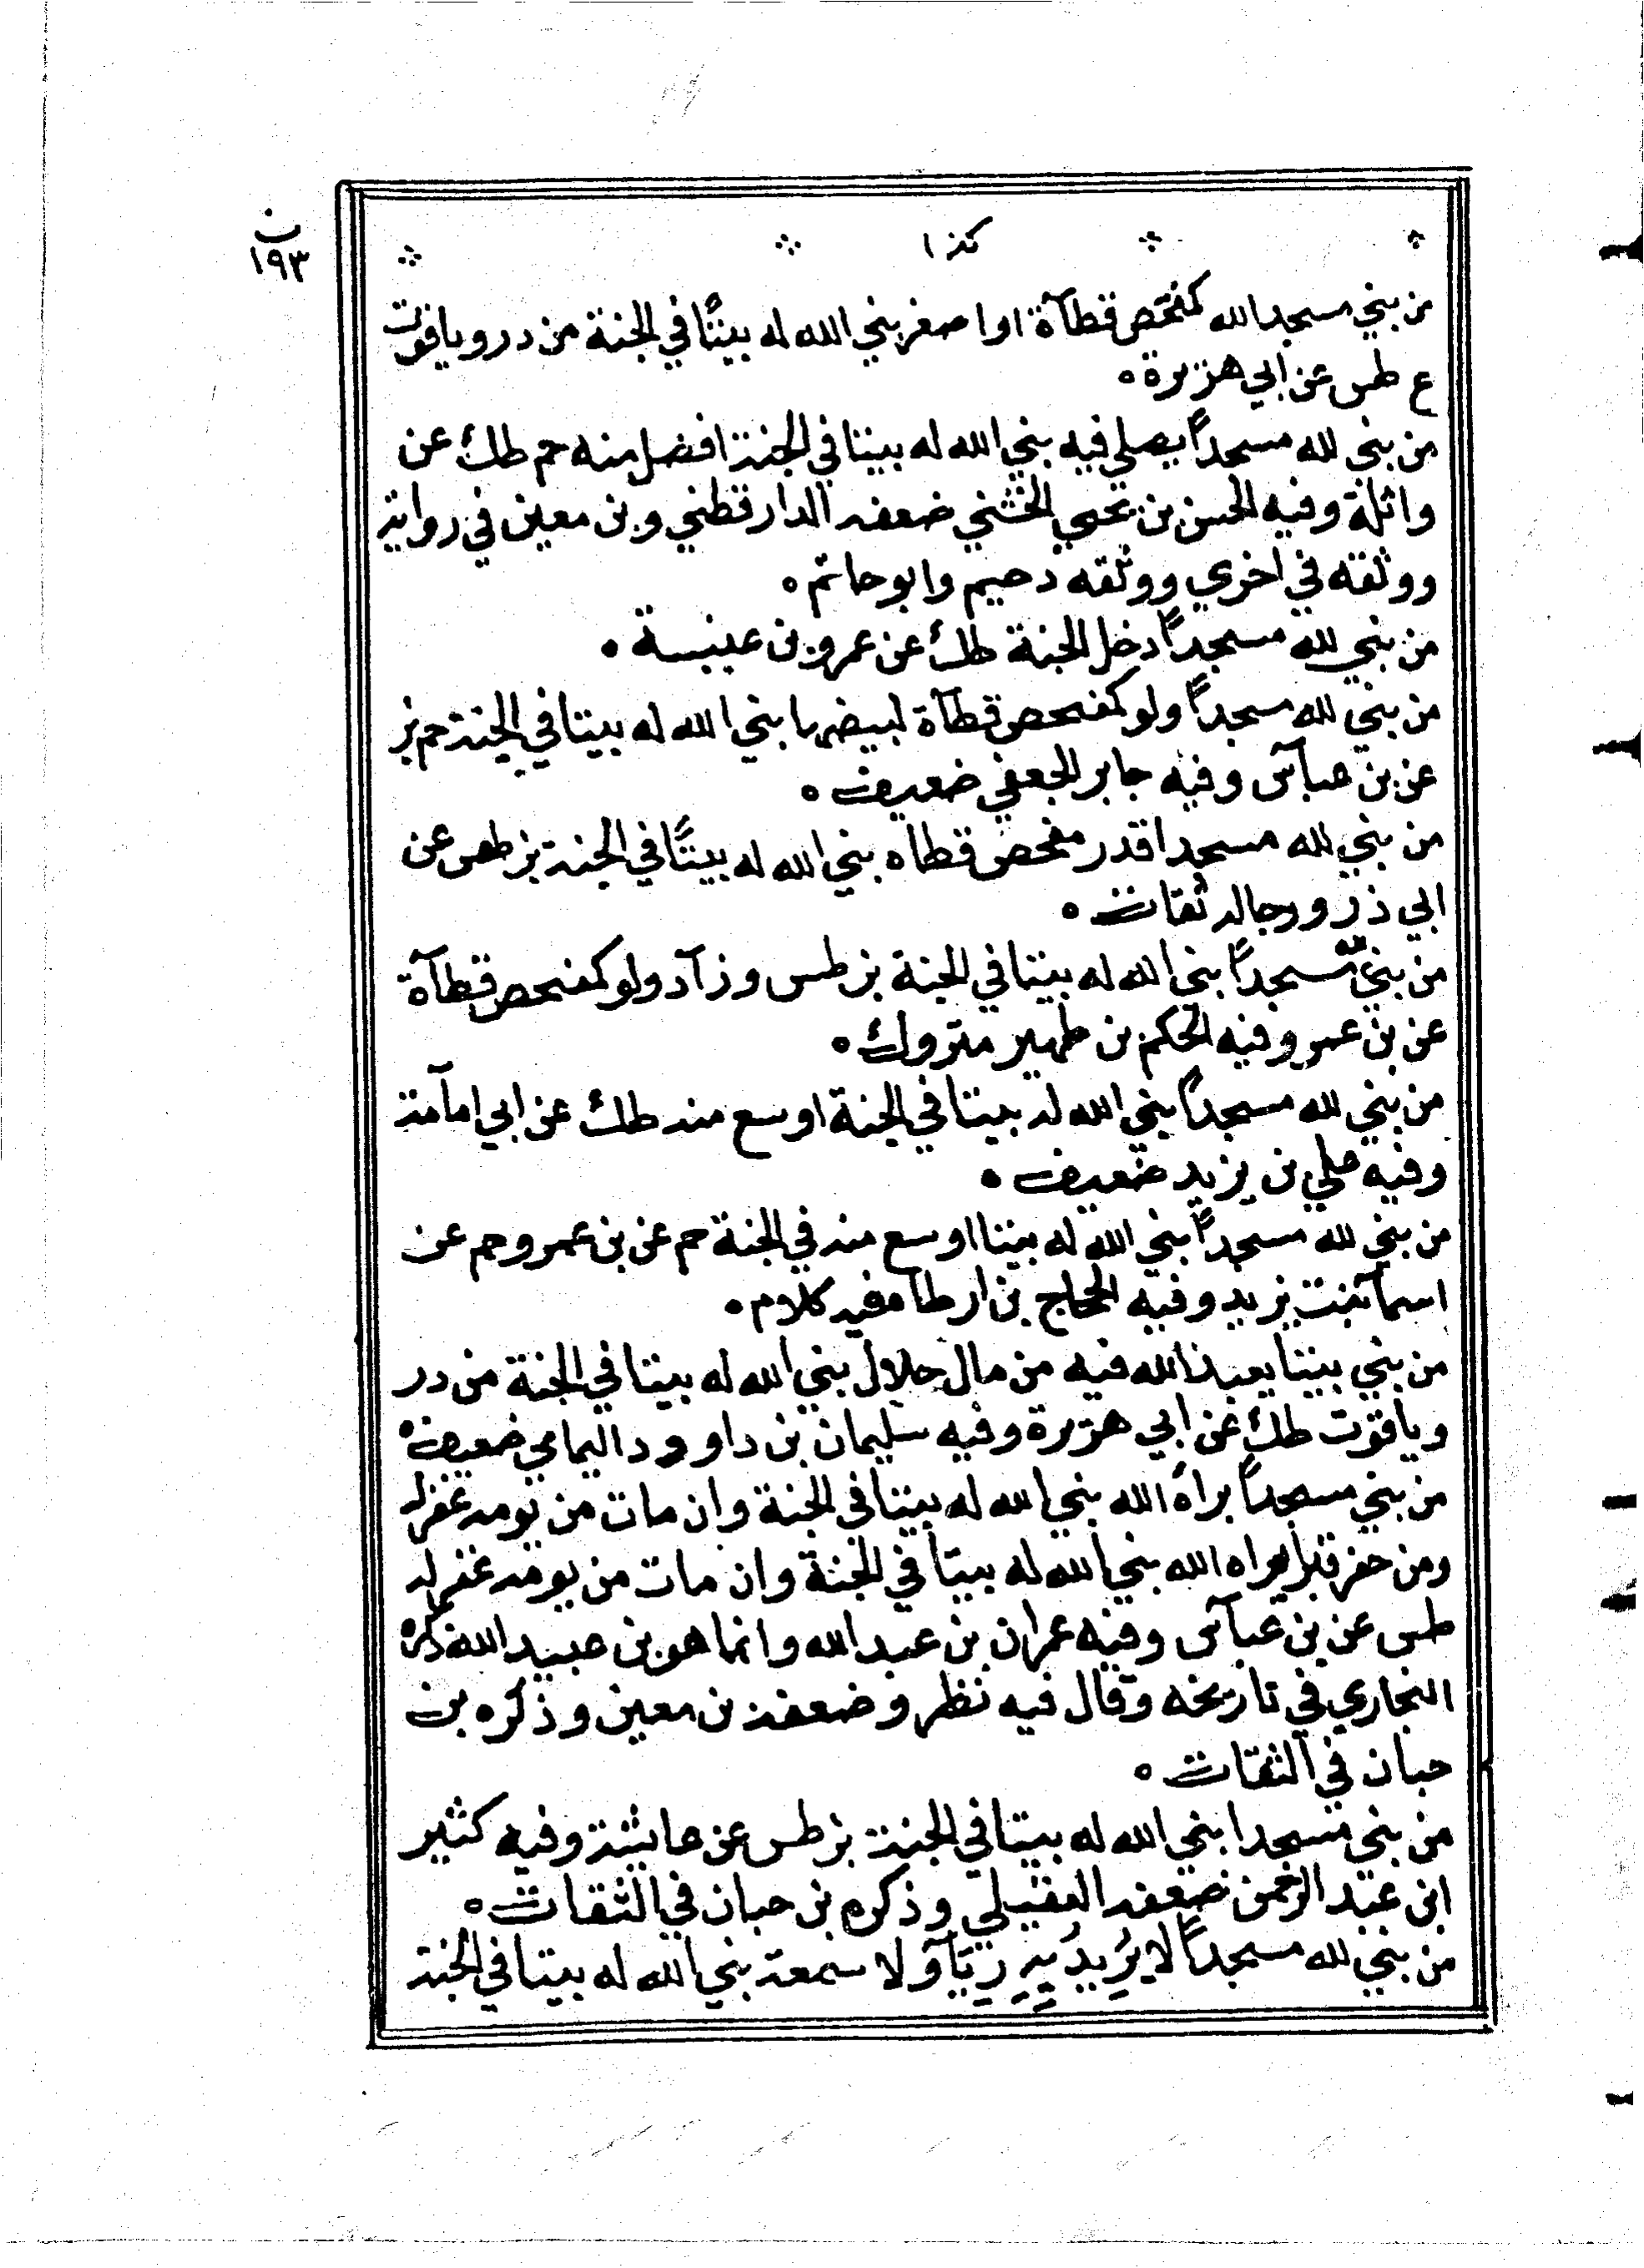 ن
١٩٣
كذا
من بني مسجد الله كمفحص قطآة او اصغر بني الله له بيتًا في الجنة من در وياقوت
ع طس عن ابي هريرة ه
من بني لله مسجداً يصلي فيه بني الله له بيتا في الجنة افضل منه حم طك عن
واثلة وفيه الحسن بن يحيي الخشني ضعفه الدارقطني وبن معين في رواية
ووثقه في اخري ووثقه دحيم وابو حاتم ه
من بني لله مسجداً دخل الجنة طك عن عمرو بن عنبسة ه
من بني لله مسجداً ولو كمفحص قطآة لبيضها بني الله له بيتا في الجنة حم بز
عن بن عبآس وفيه جابر الجعفي ضعيف ه
من بني لله مسجدا قدر مفحص قطاه بني الله له بيتًا في الجنة بز طص عن
ابي ذر ورجاله ثقات ه
من بني لله مسجداً بني الله له بيتا في الجنة بز طس وزآد ولو كمفحص قطآة
عن بن عمر وفيه الحكم بن ظهير متروك ه
من بني لله مسجداً بني الله له بيتا في الجنة اوسع منه طك عن ابي امآمة
وفيه علي بن يزيد ضعيف ه
من بني لله مسجداً بني الله له بيتا اوسع منه في الجنة حم عن بن عمرو حم عن
اسمآ بنت يزيد وفيه الحجاج بن ارطاه فيه كلام ه
من بني بيتا يعبد الله فيه من مال حلال بني الله له بيتا في الجنة من در
وياقوت طك عن ابي هريرة وفيه سليمان بن داوود اليمامي ضعيف ه
من بني مسجداً يراه الله بني الله له بيتا في الجنة وان مات من يومه غفر له
ومن حفر قبرا يراه الله بني الله له بيتا في الجنة وان مات من يومه غفر له
طس عن بن عبآس وفيه عمران بن عبد الله وانما هو بن عبيد الله ذكره
البخاري في تاريخه وقال فيه نظر وضعفه بن معين وذكره بن
حبان في الثقات ه
من بني مسجدا بني الله له بيتا في الجنة بز طس عن عايشة وفيه كثير
ابن عبد الرحمن ضعفه العقيلي وذكره بن حبان في الثقات ه
من بني لله مسجداً لا يُرِيدُ بِهِ رِيَآ ولا سمعة بني الله له بيتا في الجنة